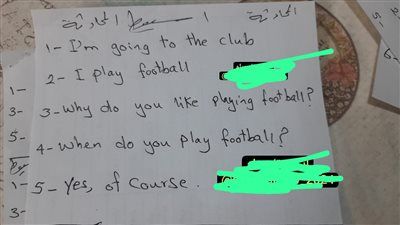 المحادثة ا المحادثة
1- I'm going to the club
2- I play football
3- why do you like playing football?
4- when do you play football?
5- Yes, of course.
1-
3-
5-
1-
3-
5-
6-